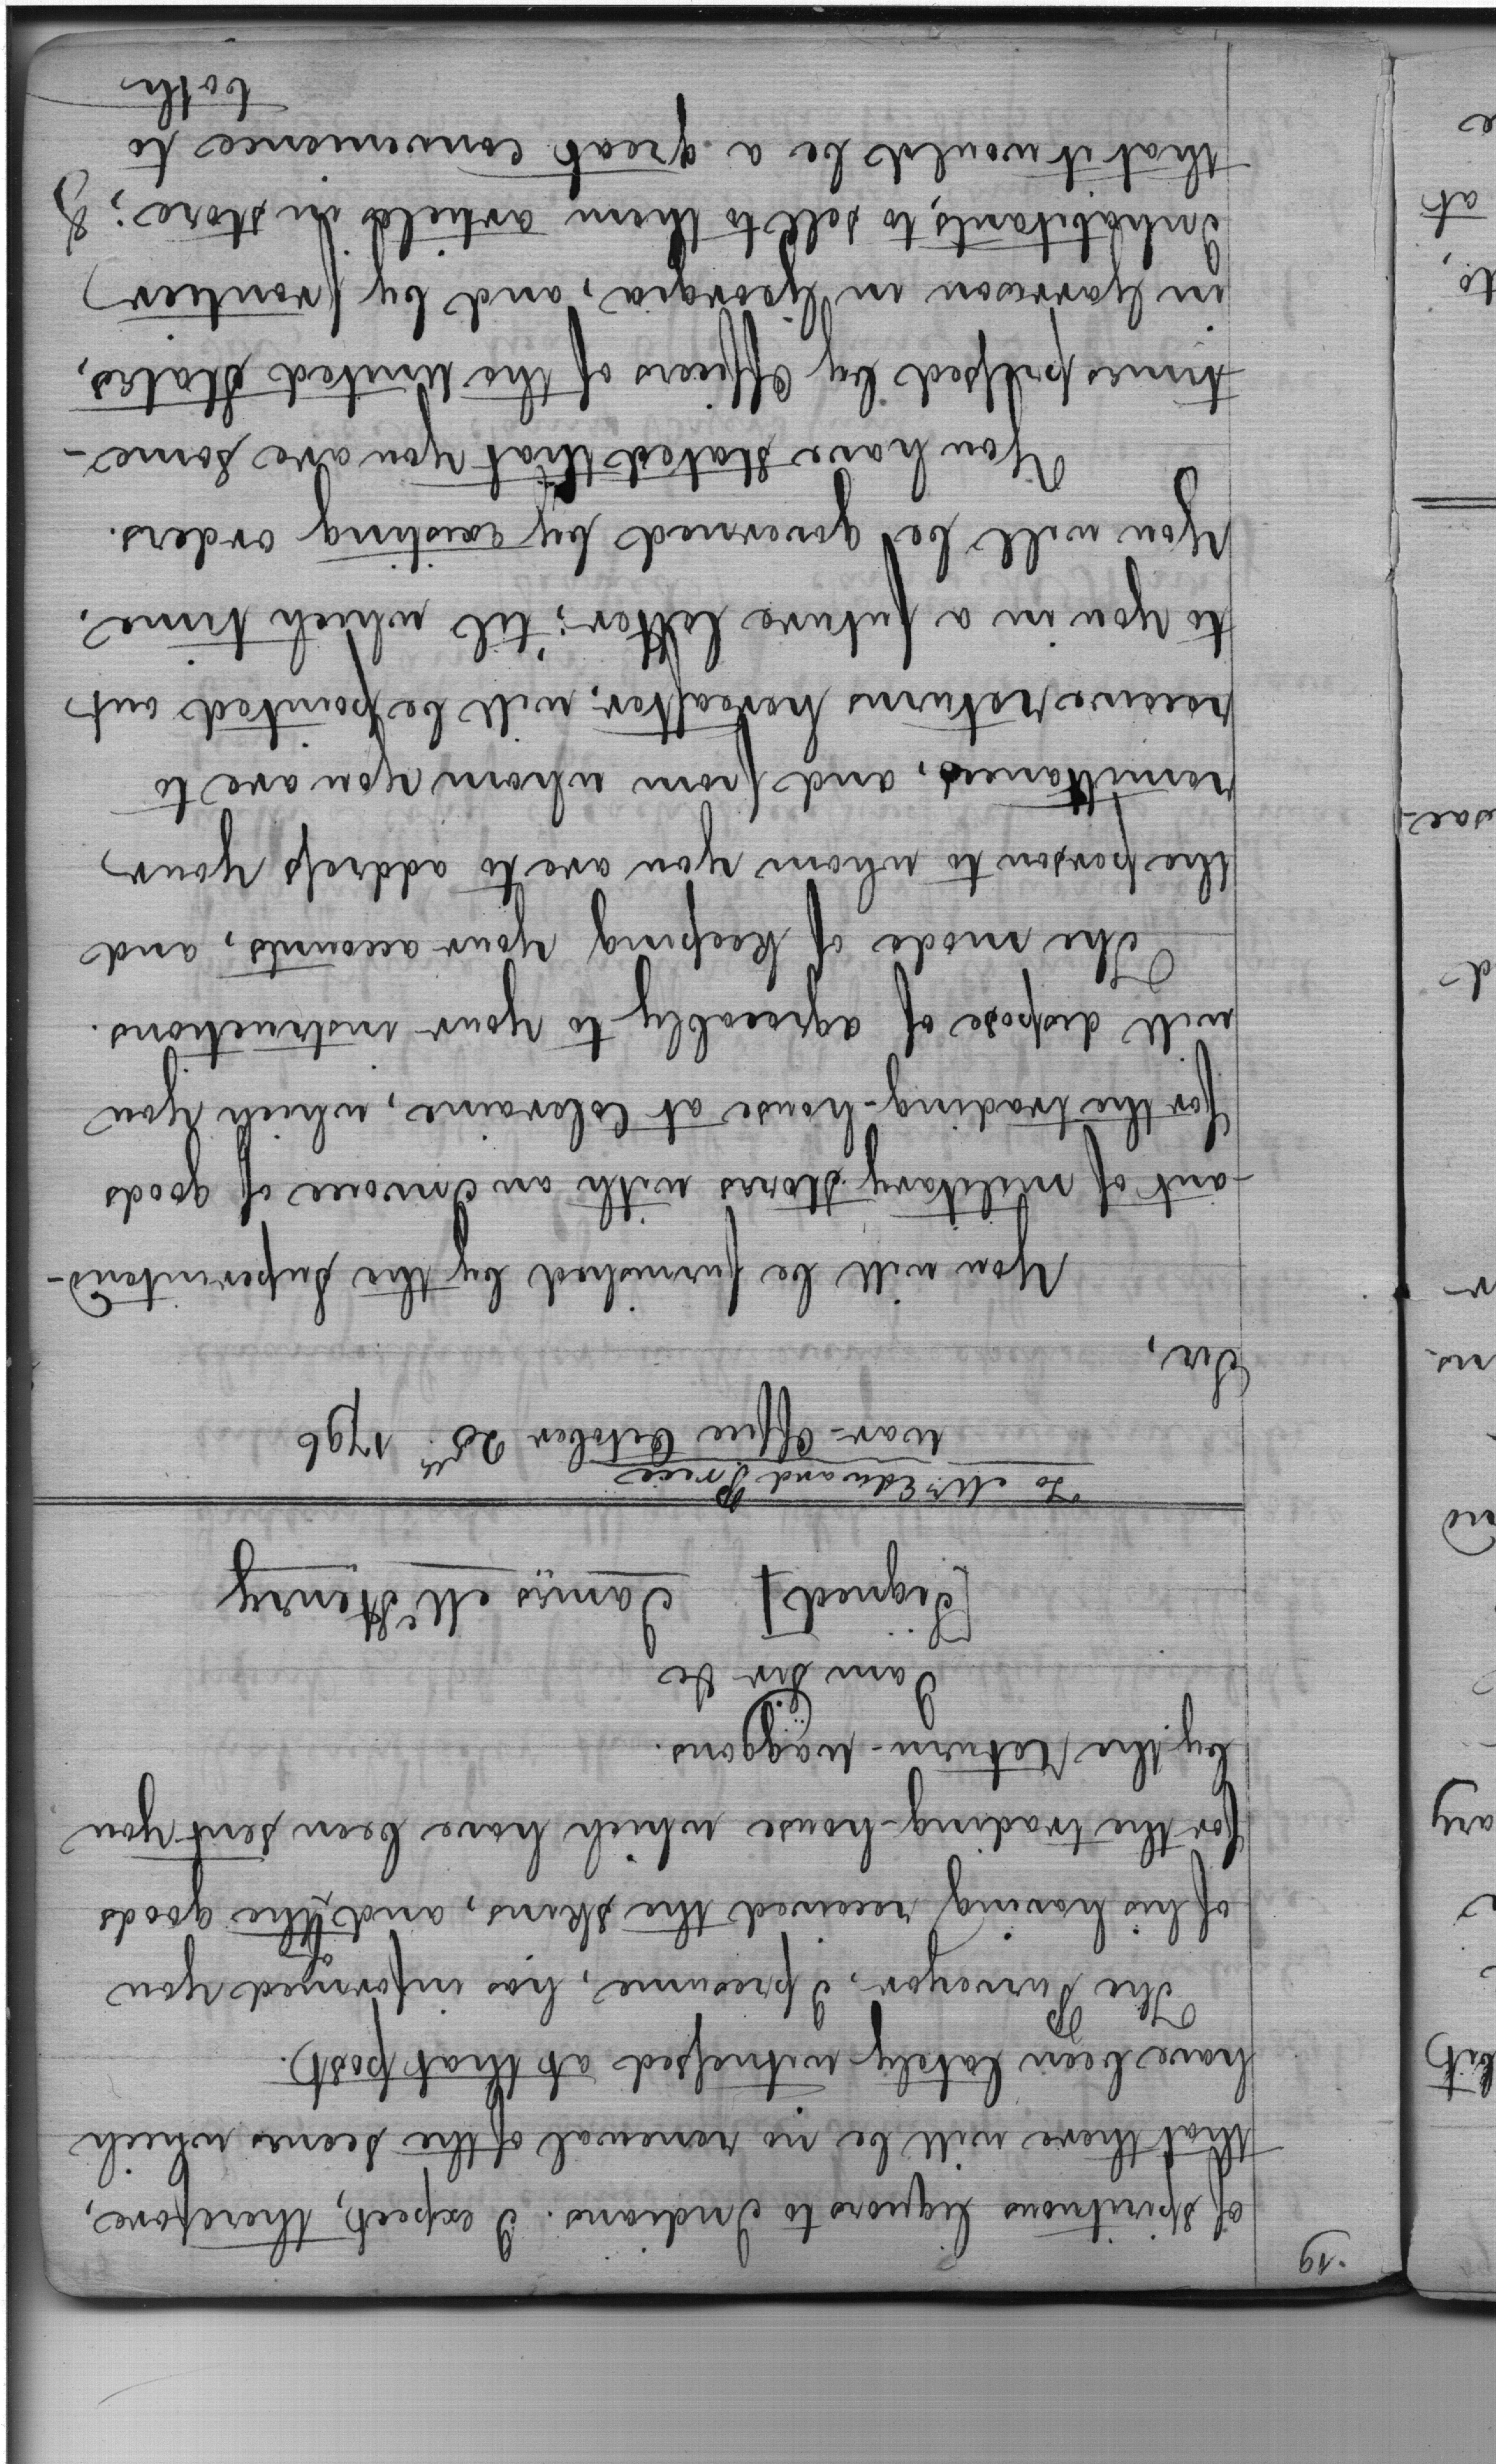 19.
of spirituous liquors to Indians. I expect, therefore,
that there will be no renewal of the scenes which
have been lately witnessed at that post.
The Purveyor, I presume, has informed you
of his having received the skins, and the goods
for the trading-house which have been sent you
by the return-waggons.
I am Sir &c
[Signed] James McHenry
To Mr Edward Price
War-Office October 25th 1796
Sir,
You will be furnished by the Superintend-
-ant of military stores with an Invoice of goods
for the trading-house at Coleraine, which you
will dispose of agreeably to your instructions.
The mode of keeping your accounts, and
the person to whom you are to address your
remittances, and from whom you are to
receive returns hereafter, will be pointed out
to you in a future letter; 'til which time,
you will be governed by existing orders.
You have stated that you are some-
times pressed by Officers of the United States,
in Garrison in Georgia, and by frontier
Inhabitants, to sell to them articles in store; &
that it would be a great convenience to
both